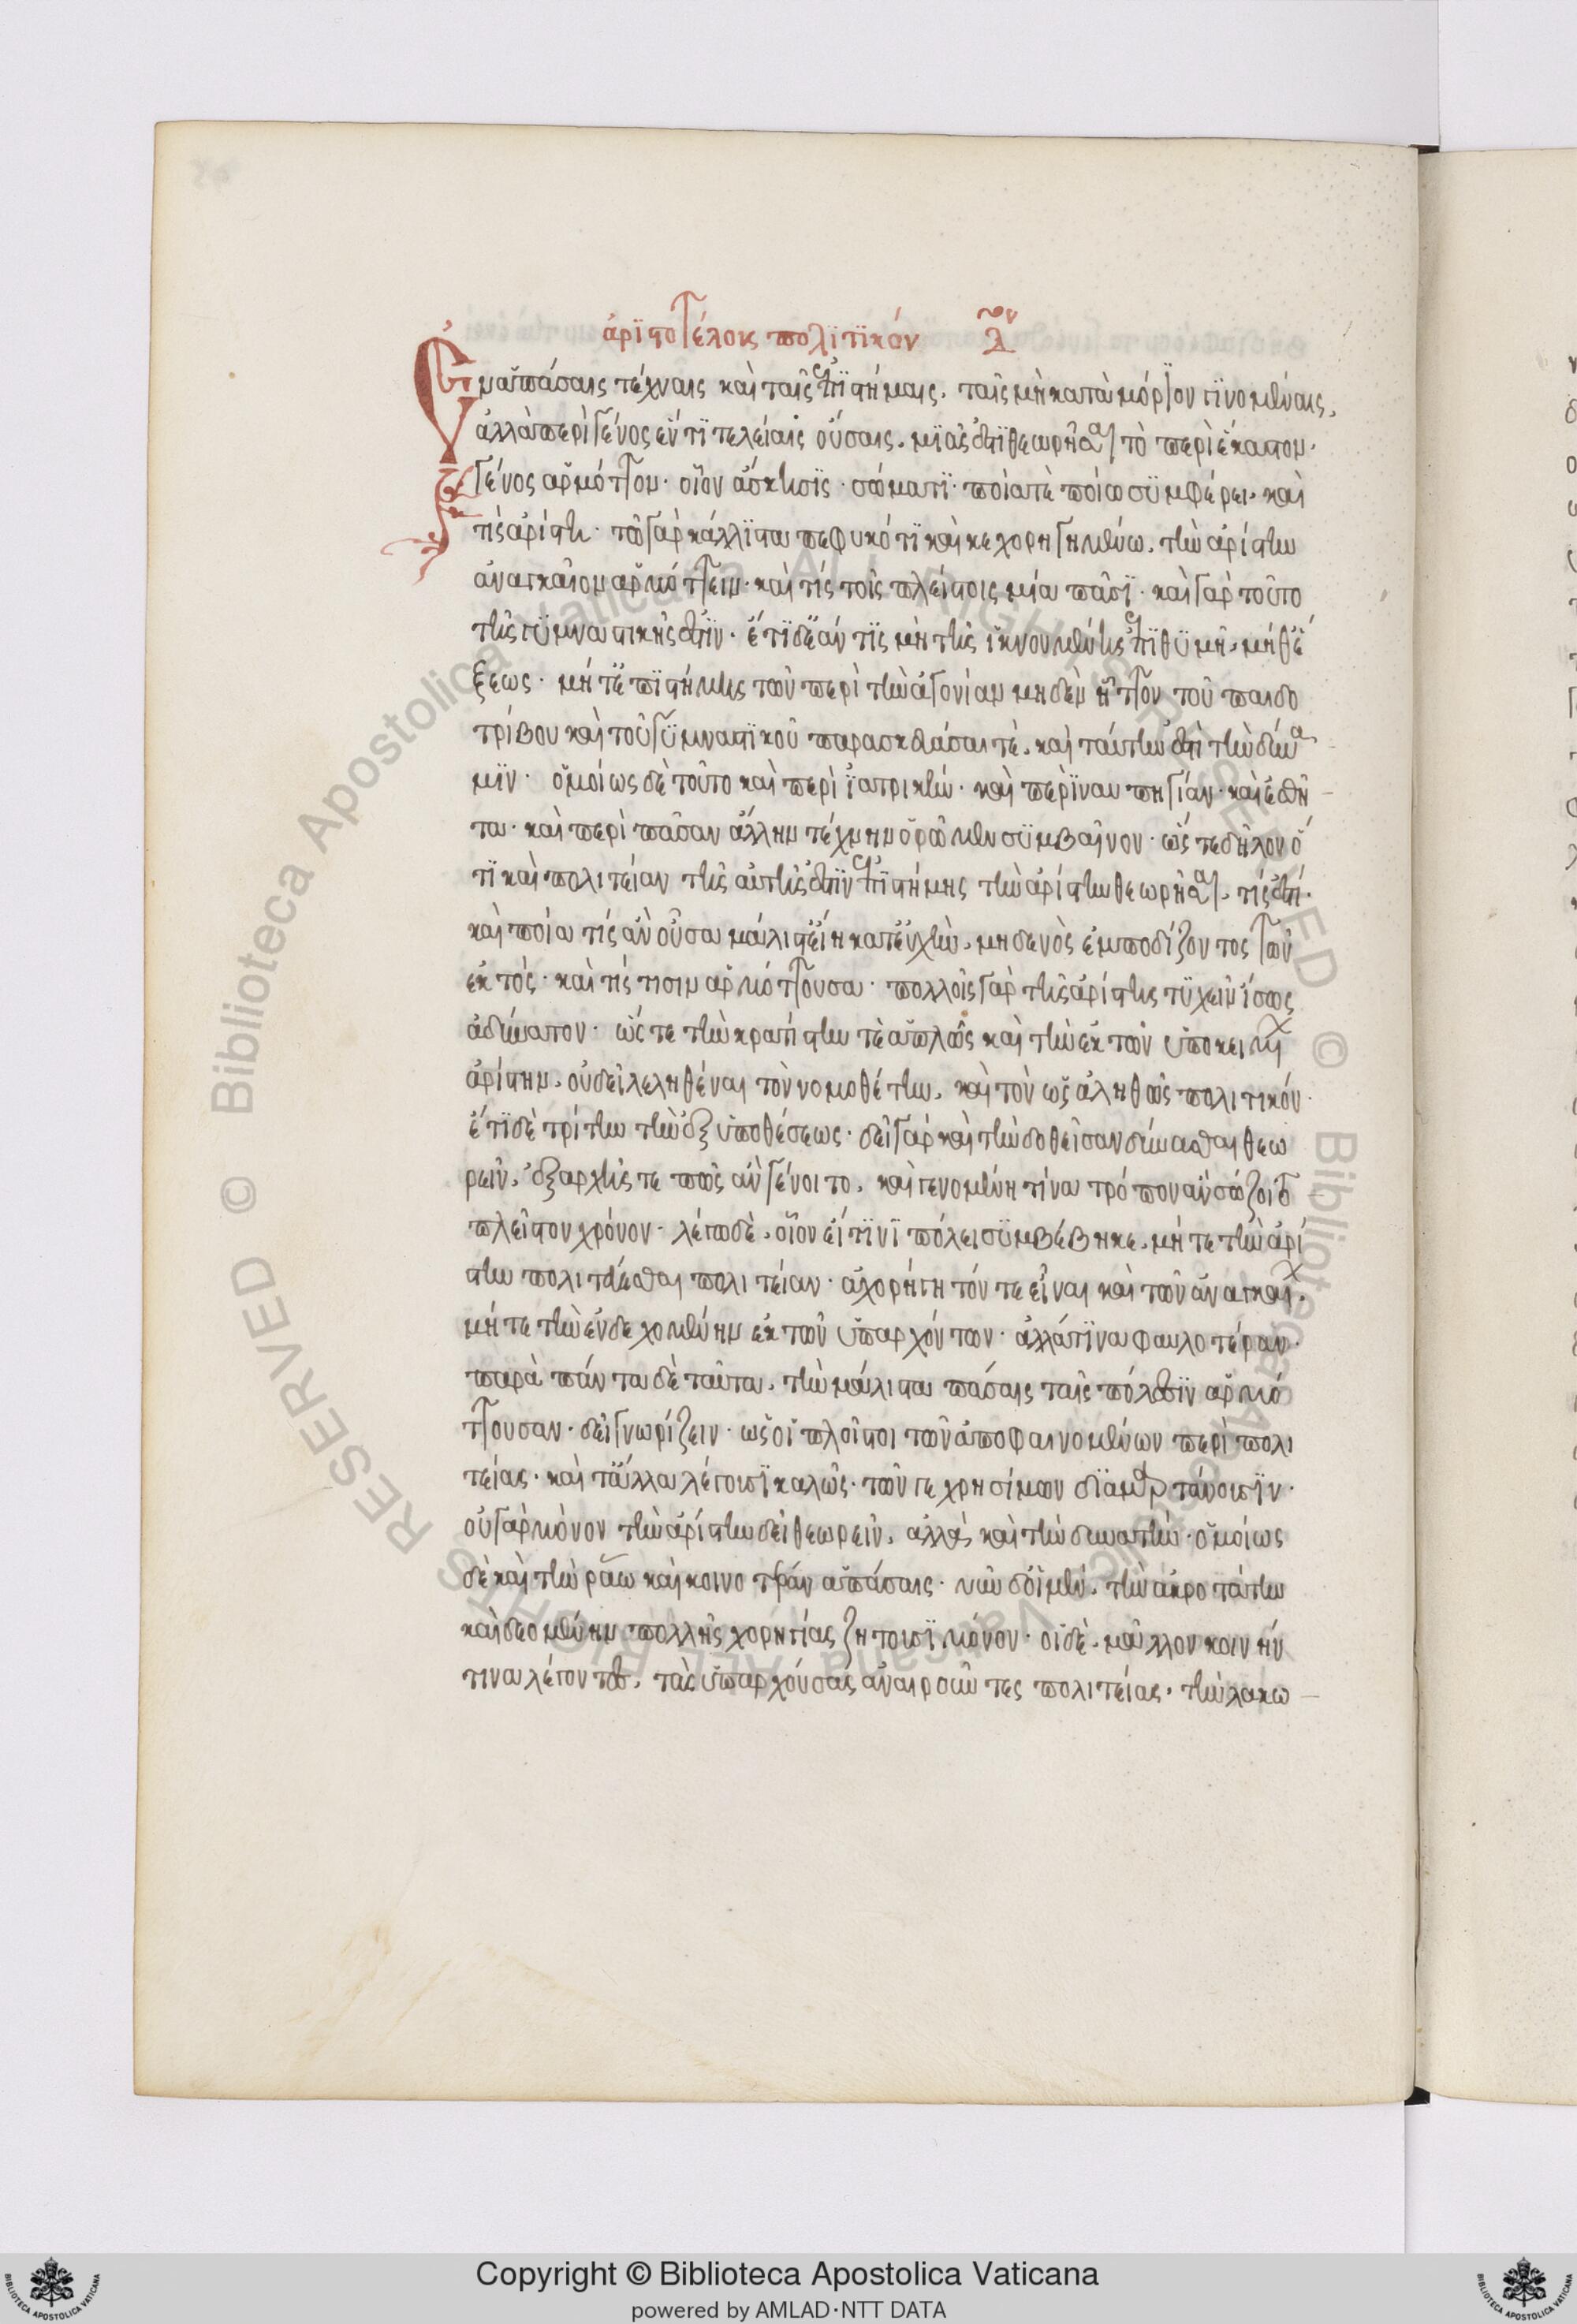 ἀριστοτέλους πολιτικῶν Δον
Ἐν ἁπάσαις τέχναις καὶ ταῖς ἐπιστήμαις, ταῖς μὴ κατὰ μόριον γινομέναις,
ἀλλὰ περὶ γένος ἕν τι τελείαις οὔσαις, μιᾶς ἐστὶ θεωρῆσαι τὸ περὶ ἕκαστον
γένος ἁρμόττον· οἷον ἄσκησις σώματι ποία τὲ ποίω συμφέρει, καὶ
τίς ἀρίστη· τῶ γὰρ κάλλιστα πεφυκότι καὶ κεχορηγημένω, τὴν ἀρίστην
ἀναγκαῖον ἁρμόττειν· καὶ τίς τοῖς πλείστοις μία πᾶσι· καὶ γὰρ τοῦτο
τῆς γυμναστικῆς ἐστίν· ἔτι δ' ἐάν τις μὴ τῆς ἱκνουμένης ἐπιθυμῆ, μήθ' ἕ
ξεως· μήτ' ἐπιστήμης τῶν περὶ τὴν ἀγονίαν μηδὲν ἧττον τοῦ παιδο
τρίβου καὶ τοῦ γυμναστικοῦ παρασκευάσαι τὲ, καὶ ταύτην ἐστὶ τὴν δύνα
μιν· ὁμοίως δὲ τοῦτο καὶ περὶ ἰατρικήν· καὶ περὶ ναυπηγίαν· καὶ ἐσθῆ
τα· καὶ περὶ πᾶσαν ἄλλην τέχνην ὁρῶμεν συμβαῖνον· ὥστε δῆλον ὅ
τι καὶ πολιτείαν τῆς αὐτῆς ἐστὶν ἐπιστήμης τὴν ἀρίστην θεωρῆσαι, τίς ἐστί·
καὶ ποία τίς ἂν οὖσα μάλιστ' εἴη κατ' εὐχὴν, μηδενὸς ἐμποδίζοντος τῶν
ἐκτός· καὶ τίς τισιν ἁρμόττουσα· πολλοῖς γὰρ τῆς ἀρίστης τυχεῖν ἴσως
ἀδύνατον· ὥστε τὴν κρατίστην τὲ ἁπλῶς καὶ τὴν ἐκ τῶν ὑποκειμ
ἀρίστην, οὐ δεῖ λεληθέναι τὸν νομοθέτην, καὶ τὸν ὡς ἀληθῶς πολιτικόν·
ἔτι δὲ τρίτην τὴν ἐξ ὑποθέσεως· δεῖ γὰρ καὶ τὴν δοθεῖσαν δύνασθαι θεω
ρεῖν, ἐξαρχῆς τε πῶς ἂν γένοιτο, καὶ γενομένη τίνα τρόπον ἂν σώζοιτο
πλεῖστον χρόνον· λέγω δὲ, οἷον εἴ τινι πόλει συμβέβηκε, μήτε τὴν ἀρί
στην πολιτεύεσθαι πολιτείαν· ἀχορήγητόν τε εἶναι καὶ τῶν ἀναγκαι,
μήτε τὴν ἐνδεχομένην ἐκ τῶν ὑπαρχόντων· ἀλλά τινα φαυλοτέραν·
παρὰ πάντα δὲ ταῦτα, τὴν μάλιστα πάσαις ταῖς πόλεσιν ἁρμό
ττουσαν· δεῖ γνωρίζειν· ὡς οἱ πλοῖστοι τῶν ἀποφαινομένων περὶ πολι
τείας· καὶ τἄλλα λέγουσι καλῶς· τῶν γε χρησίμων διαμαρτάνουσιν·
οὐ γὰρ μόνον τὴν ἀρίστην δεῖ θεωρεῖν, ἀλλὰ καὶ τὴν δυνατὴν· ὁμοίως
δὲ καὶ τὴν ῥάω καὶ κοινοτέραν ἁπάσαις· νῦν δ' οἱ μὲν, τὴν ἀκροτάτην
καὶ δεομένην πολλῆς χορηγίας ζητοῦσι μόνον· οἱ δὲ, μᾶλλον κοινήν
τινα λέγοντες, τὰς ὑπαρχούσας ἀναιροῦντες πολιτείας, τὴν λακω
Copyright © Biblioteca Apostolica Vaticana
powered by AMLAD·NTT DATA